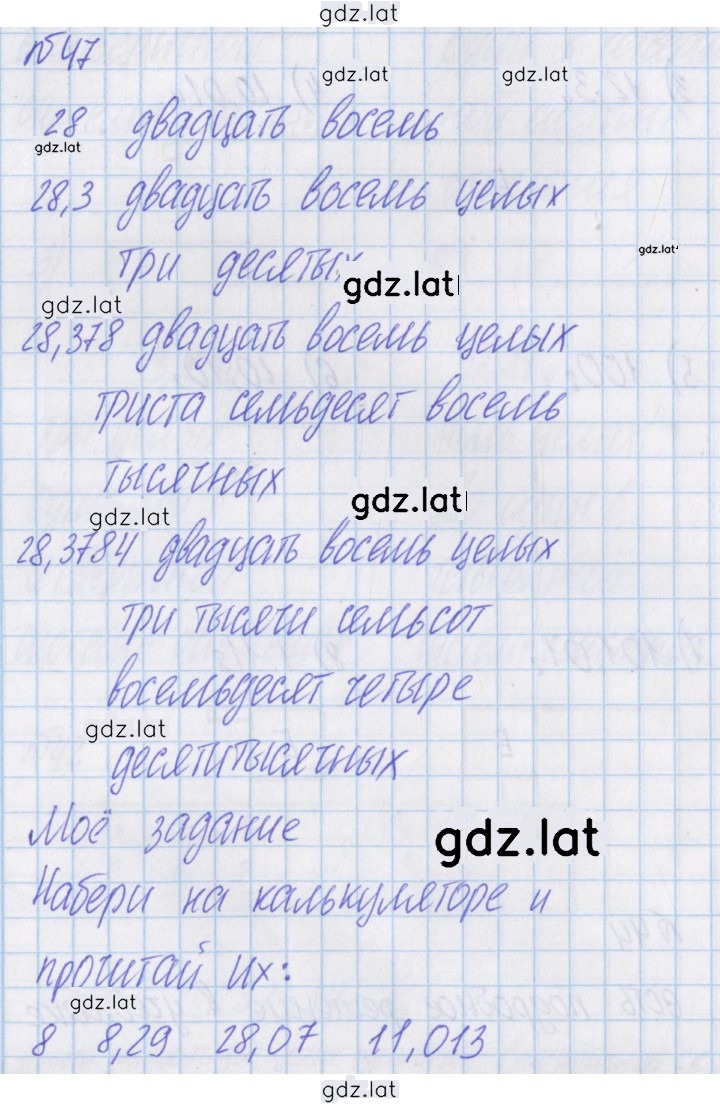 gdz.lat
№47
gdz.lat gdz.lat
28 двадцать восемь
gdz.lat
28,3 двадцать восемь целых
gdz.lat
три десятых
gdz.lat
gdz.lat
28,378 двадцать восемь целых
триста семьдесят восемь
тысячных
gdz.lat
gdz.lat
28,3784 двадцать восемь целых
три тысячи семьсот
восемьдесят четыре
gdz.lat
десятитысячных
Моё задание
gdz.lat
Набери на калькуляторе и
прочитай их:
gdz.lat
8 8,29 28,07 11,013
gdz.lat